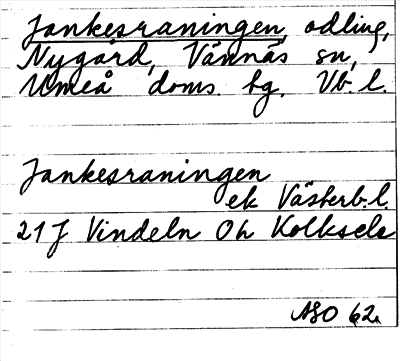 Jankesraningen, odling,
Nygård, Vännäs sn,
Umeå doms. bg. Vb. l.
Jankesraningen
ek Västerb. l.
21 J Vindeln Oh Kolksele
ASO 62.